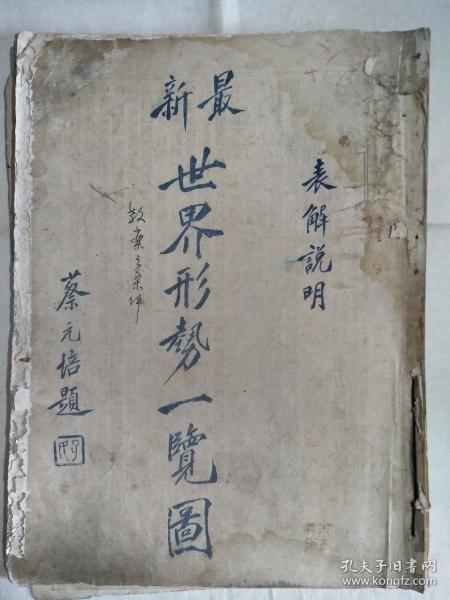 表解說明
最新
世界形勢一覽圖
蔡元培題
孔夫子旧书网
www.kongfz.com